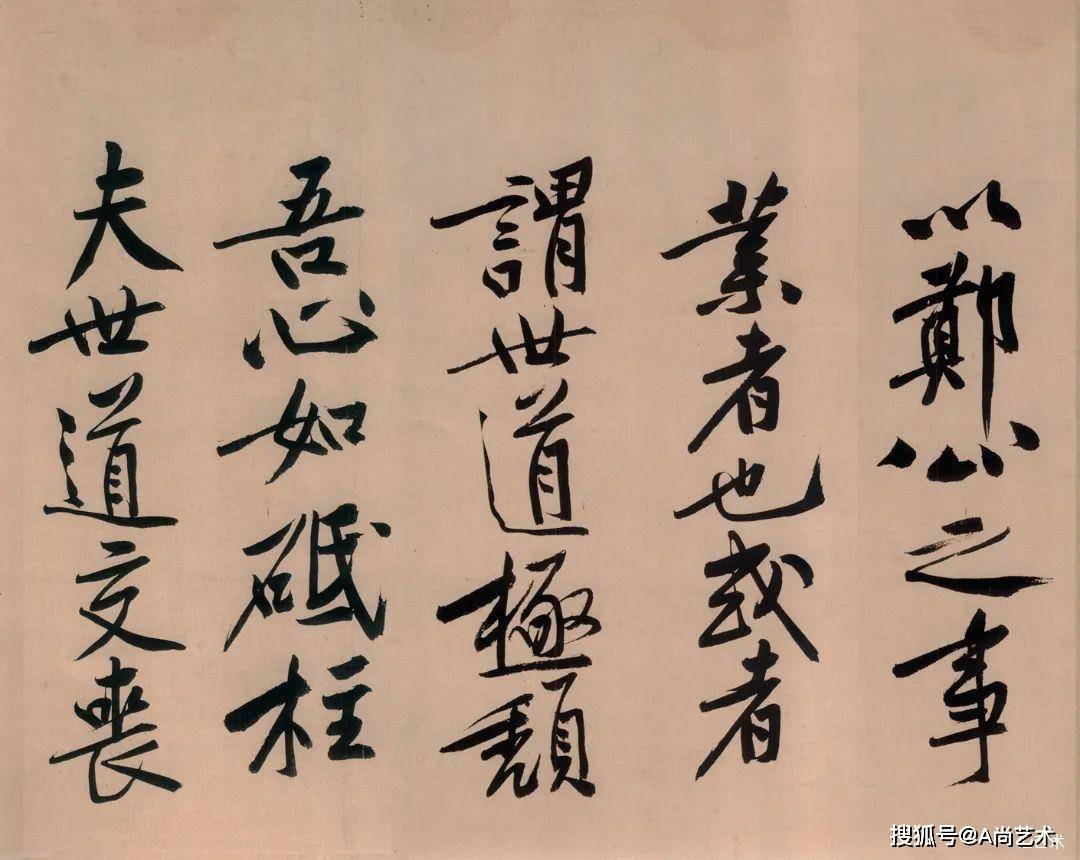 以鄭公之事
業者也或者
謂世道極頹
吾心如砥柱
夫世道交喪
搜狐号@A尚艺术